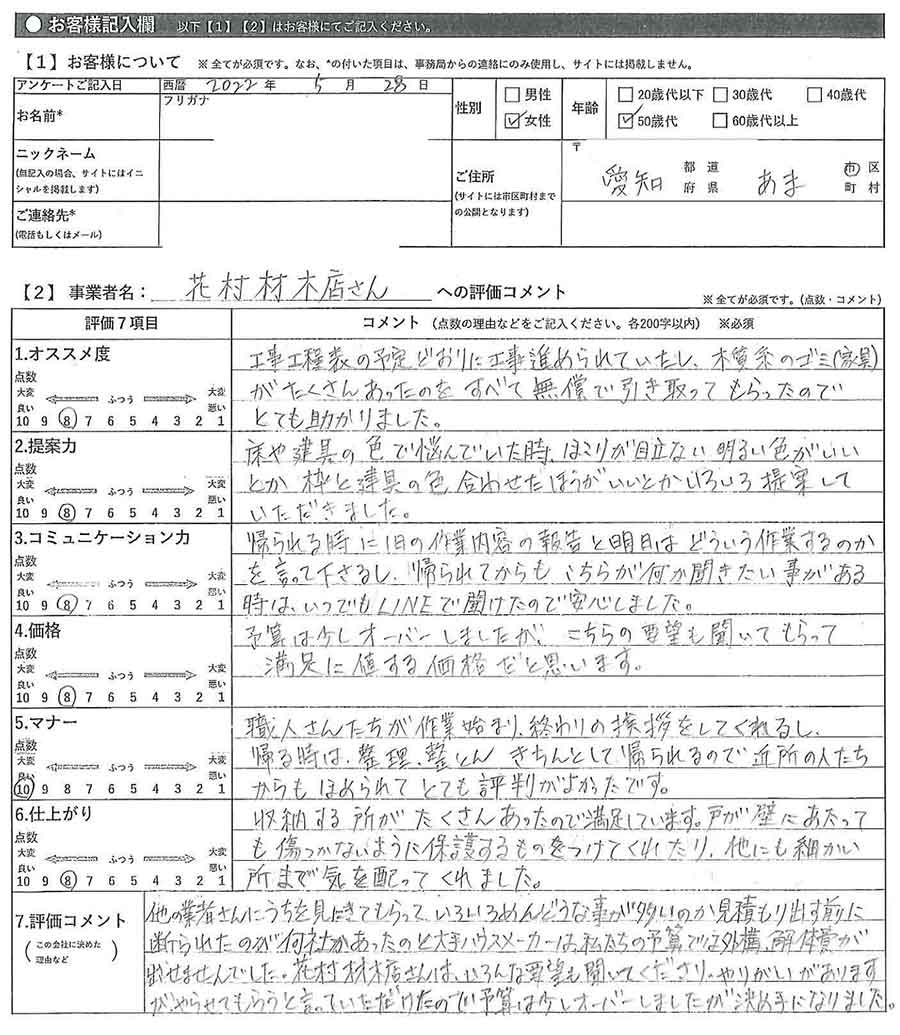 ● お客様記入欄 以下【1】【2】はお客様にてご記入ください。
【1】お客様について ※全てが必須です。なお、*の付いた項目は、事務局からの連絡にのみ使用し、サイトには掲載しません。
アンケートご記入日 西暦 2022 年 5 月 28 日
フリガナ
お名前*
性別 □男性 ☑女性
年齢 □20歳代以下 □30歳代 □40歳代
☑50歳代 □60歳代以上
ニックネーム
(無記入の場合、サイトにはイニシャルを掲載します)
ご連絡先*
(電話もしくはメール)
ご住所
(サイトには市区町村までの公開となります)
〒
愛知 都道府県 あま 市区町村
【2】事業者名: 花村材木店さん への評価コメント ※全てが必須です。(点数・コメント)
評価7項目 コメント (点数の理由などをご記入ください。各200字以内) ※必須
1.オススメ度
点数
大変良い ふつう 大変悪い
10 9 8 7 6 5 4 3 2 1
工事工程表の予定どおりに工事進められていたし、木質系のゴミ(家具)
がたくさんあったのをすべて無償で引き取ってもらったので
とても助かりました。
2.提案力
点数
大変良い ふつう 大変悪い
10 9 8 7 6 5 4 3 2 1
床や建具の色で悩んでいた時、ほこりが目立ない明るい色がいい
とか枠と建具の色、合わせたほうがいいとかいろいろ提案して
いただきました。
3.コミュニケーション力
点数
大変良い ふつう 大変悪い
10 9 8 7 6 5 4 3 2 1
帰られる時に1日の作業内容の報告と明日はどういう作業するのか
を言って下さるし、帰られてからもこちらが何か聞きたい事がある
時は、いつでもLINEで聞けたので安心しました。
4.価格
点数
大変良い ふつう 大変悪い
10 9 8 7 6 5 4 3 2 1
予算は少しオーバーしましたが、こちらの要望も聞いてもらって
満足に値する価格だと思います。
5.マナー
点数
大変良い ふつう 大変悪い
10 9 8 7 6 5 4 3 2 1
職人さんたちが作業始まり、終わりの挨拶をしてくれるし、
帰る時は、整理、整とんきちんとして帰られるので近所の人たち
からもほめられてとても評判がよかったです。
6.仕上がり
点数
大変良い ふつう 大変悪い
10 9 8 7 6 5 4 3 2 1
収納する所がたくさんあったので満足しています。戸が壁にあたって
も傷つかないように保護するものをつけてくれたり、他にも細かい
所まで気を配ってくれました。
7.評価コメント
(この会社に決めた理由など)
他の業者さんにうちを見にきてもらって、いろいろめんどうな事が多いのか見積もり出す前に
断られたのが何社かあったのと大手ハウスメーカーは、私たちの予算では外構、解体費が
出せませんでした。花村材木店さんは、いろんな要望も聞いてくださり、やりがいがあります
がやらせてもらうと言っていただけたので予算は少しオーバーしましたが決め手になりました。